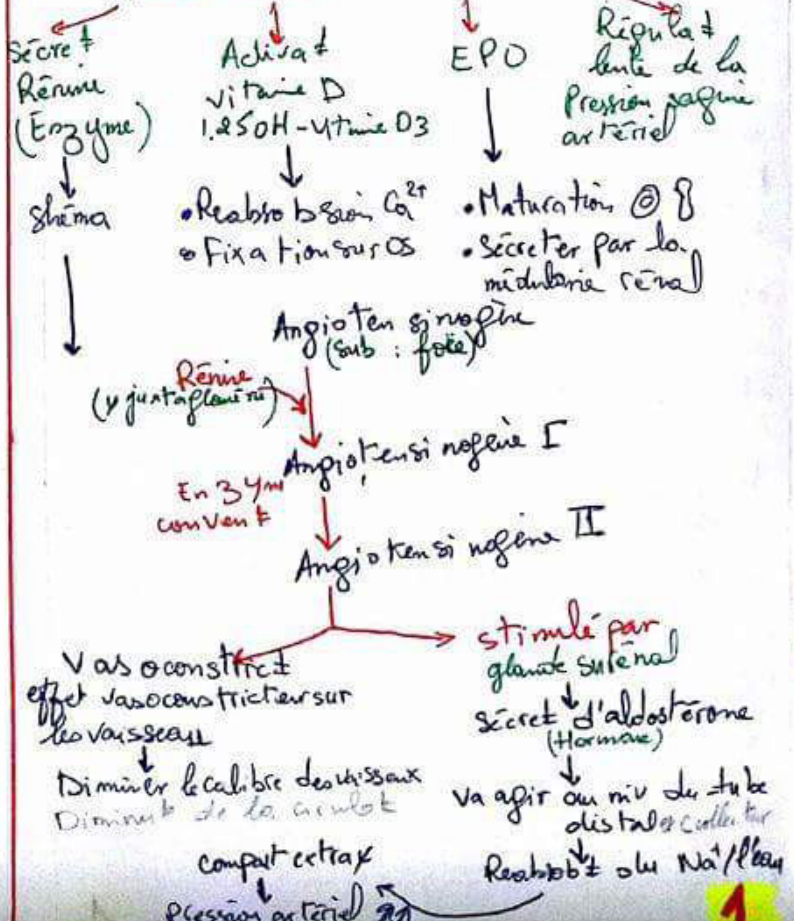 Sécret±
Rénine
(Enzyme)
Shéma
Activa±
vitamine D
1.25OH-vitmine D3
• Reabsobsion Ca²⁺
• Fixation sur OS
EPO
• Maturation
• Sécreter par la
médulaire rénal
Régula±
lente de la
Pression sagine
artériel
Angiotensinogène
(sub : foie)
Rénine
(y juxtagloméru)
Angiotensinogène I
Enzym
convent±
Angiotensinogène II
Vasoconstrict±
effet vasoconstricteur sur
les vaisseau
Diminuer le calibre des vaissaux
Diminut± de la circulat±
stimulé par
glande surénal
Sécret± d'aldostérone
(Hormone)
Va agir au niv du tube
distal et collecteur
Reabsob± du Na⁺/l'eau
compart extrax
Pression artériel ↑↑
1